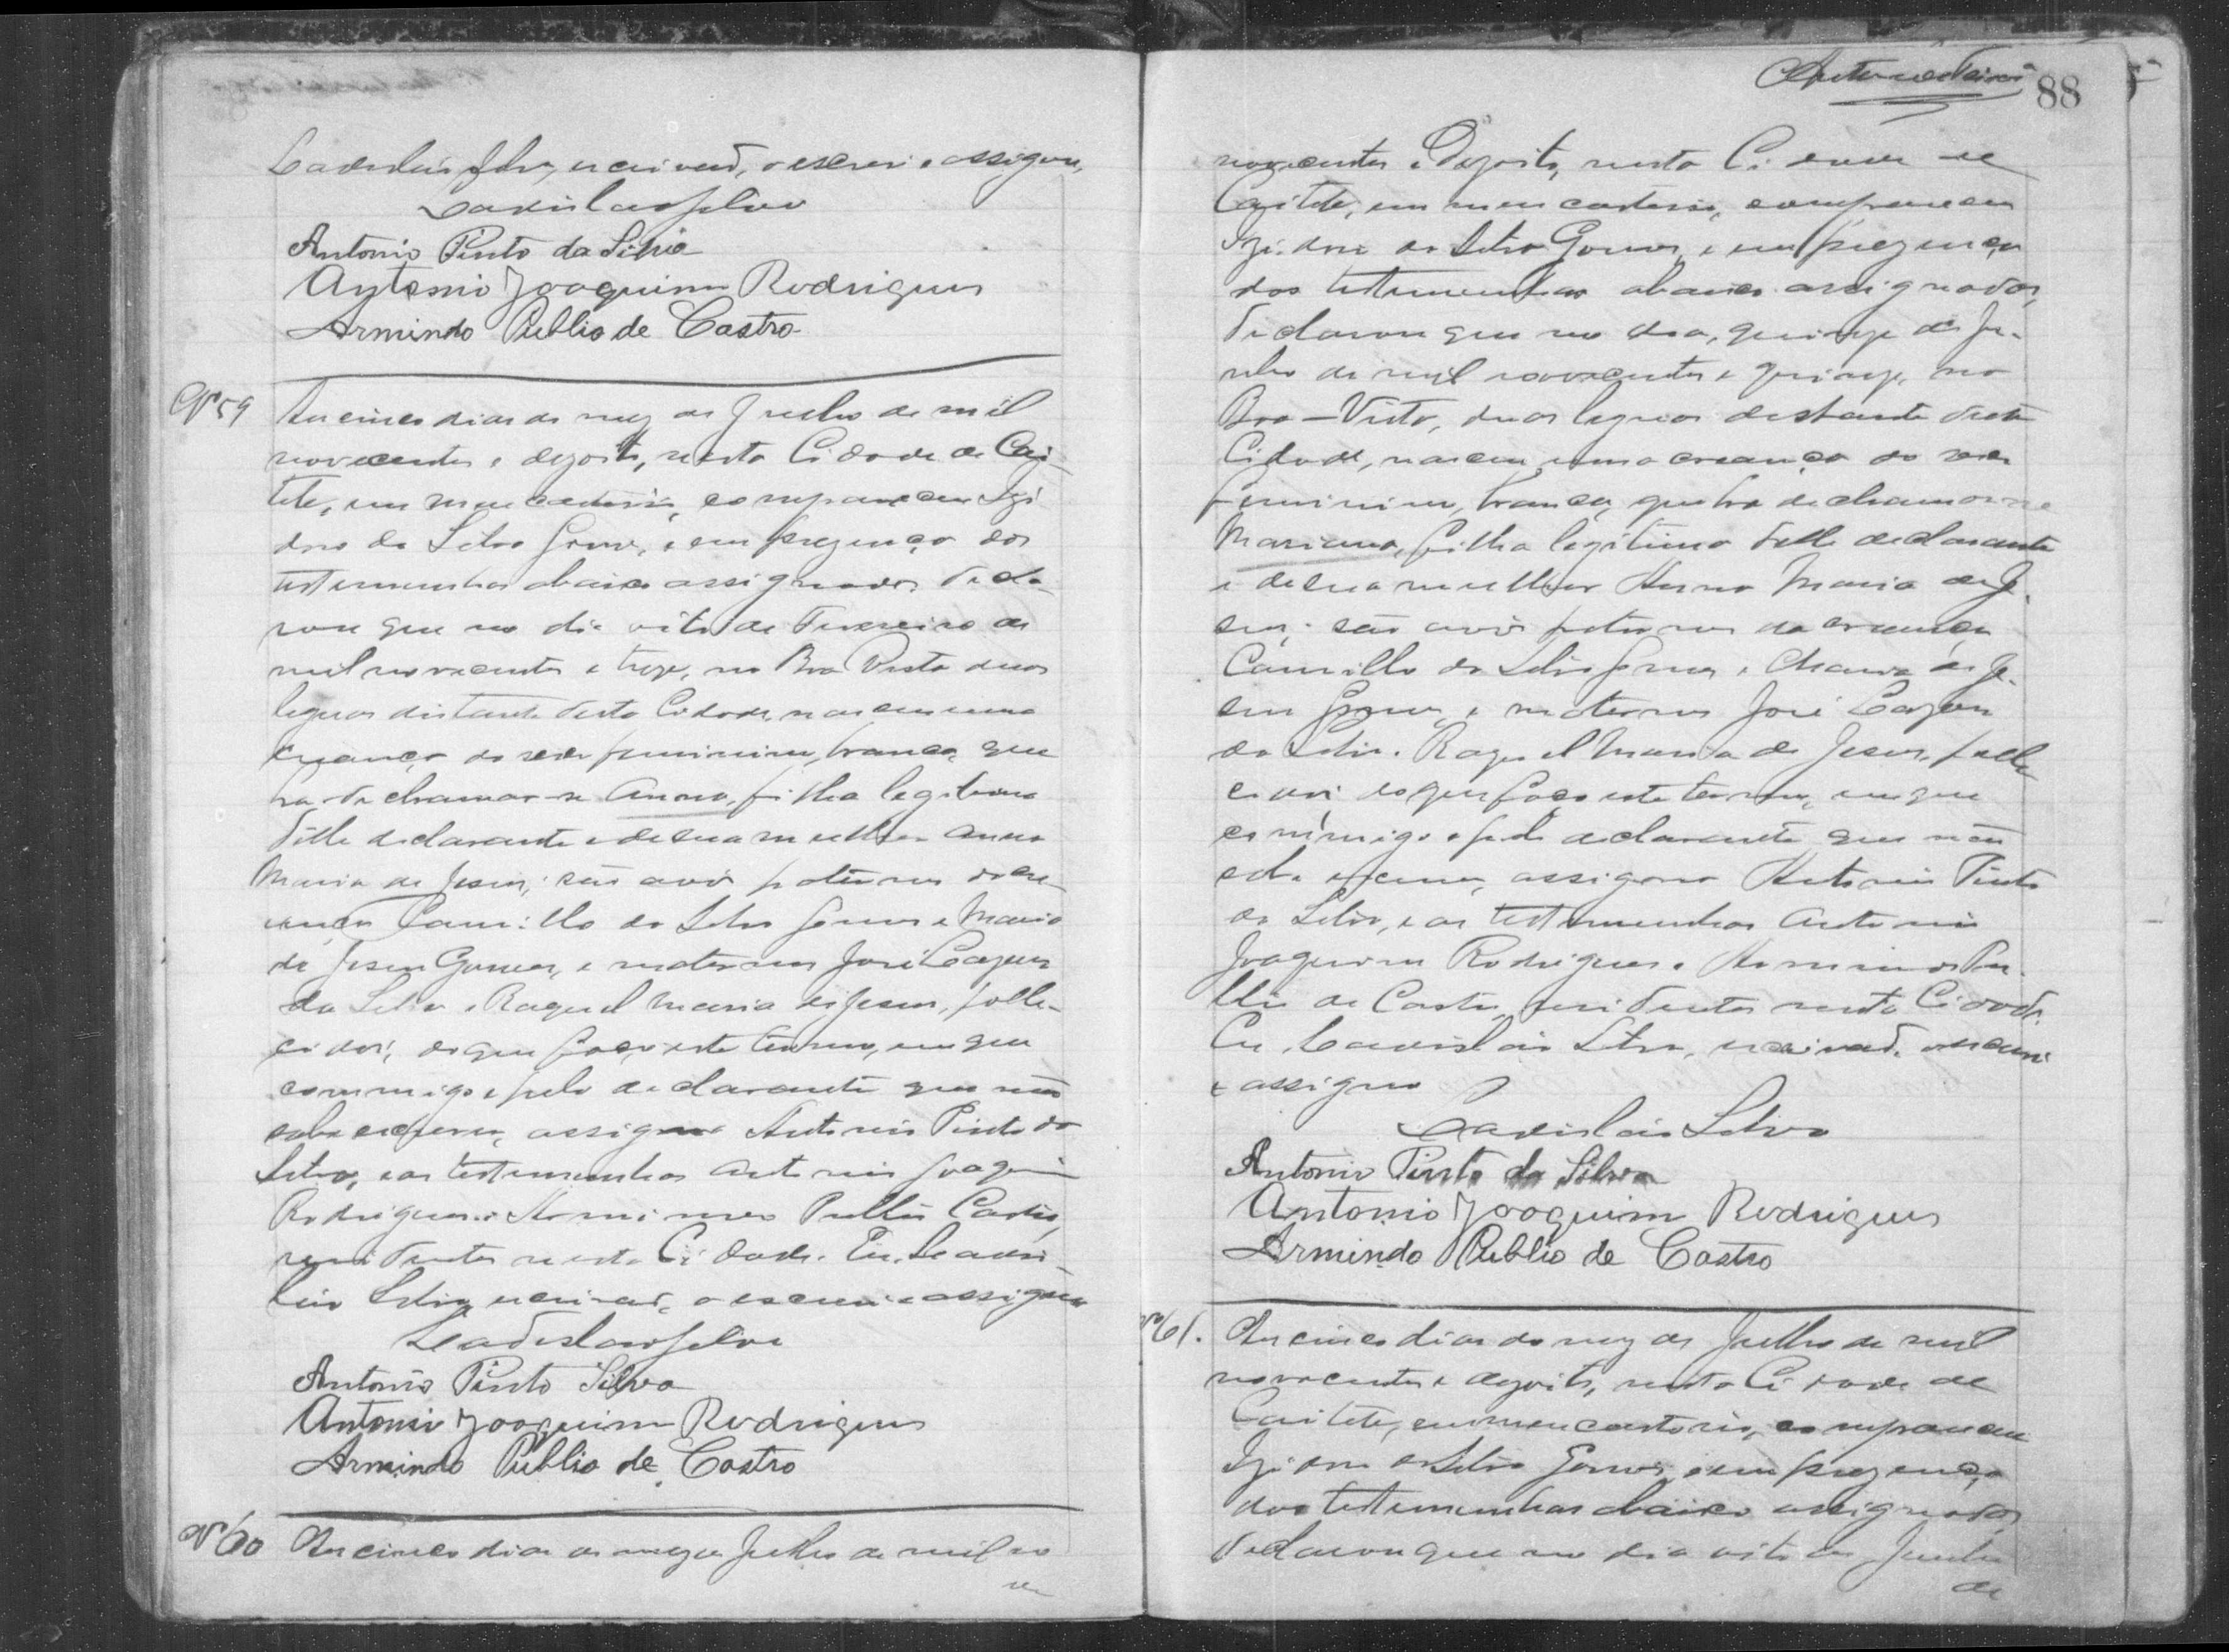 Ladislau Silva, escrivão, o escrevi e assigno,
Ladislao Silva
Antonio Pinto da Silva
Antonio Joaquim Rodrigues
Armindo Publio de Castro
Nº 59
Aos cinco dias do mez de Julho de mil
novecentos e dezoito, nesta Cidade de Cai-
teté, em meu cartorio, compareceu Izi
doro da Silva Gomes, e em prezença das
testemunhas abaixo assignadas decla-
rou que no dia oito de Fevereiro de
mil novecentos e treze, na Boa Vista duas
leguas distante desta Cidade, nasceu uma
creança do sexo feminino, branca, que
ha de chamar-se Anna, filha legitima
delle declarante e de sua mulher Anna
Maria de Jesus; são avós paternos da cre-
ança Camillo da Silva Gomes e Maria
de Jesus Gomes, e maternos José
da Silva e Raquel Maria de Jesus, falle-
cidos; do que faço este termo, em que
commigo e pelo declarante que não
sabe escrever, assigna Antonio Pinto da
Silva, e as testemunhas Antonio Joaquim
Rodrigues e Armindo Publio Castro,
residentes nesta Cidade. Eu, Ladis-
lau Silva, escrivão, o escrevi e assigno
Ladislao Silva
Antonio Pinto Silva
Antonio Joaquim Rodrigues
Armindo Publio de Castro
Nº 60
Aos cinco dias do mez de Julho de mil no
ve
88
novecentos e Dezoito, nesta Cidade de
Caiteté, em meu cartorio, compareceu
Izidoro da Silva Gomes, e em prezença
das testemunhas abaixo assignadas,
declarou que no dia, quinze de Ju-
nho de mil novecentos e quinze, na
Boa-Vista, duas leguas distante desta
Cidade, nasceu uma creança do sexo
feminino, branca, que ha de chamar-se
Mariana, filha legitima delle declarante
e de sua mulher Anna Maria de Je-
sus; são avós paternos da creança
Camillo da Silva Gomes e Maria de Je-
sus Gomes, e maternos José
da Silva e Raquel Maria de Jesus, falle
cidos; do que faço este termo, em que
commigo e pelo declarante que não
sabe escrever, assigna Antonio Pinto
da Silva, e as testemunhas Antonio
Joaquim Rodrigues e Armindo Pu-
blio de Castro, residentes nesta Cidade.
Eu, Ladislao Silva, escrivão, o escrevi
e assigno
Ladislao Silva
Antonio Pinto da Silva
Antonio Joaquim Rodrigues
Armindo Publio de Castro
Nº 61.
Aos cinco dias do mez de Julho de mil
novecentos e dezoito, nesta Cidade de
Caiteté, em meu cartorio, compareceu
Izidoro da Silva Gomes, e em prezença
das testemunhas abaixo assignadas
declarou que no dia oito de Junho
de